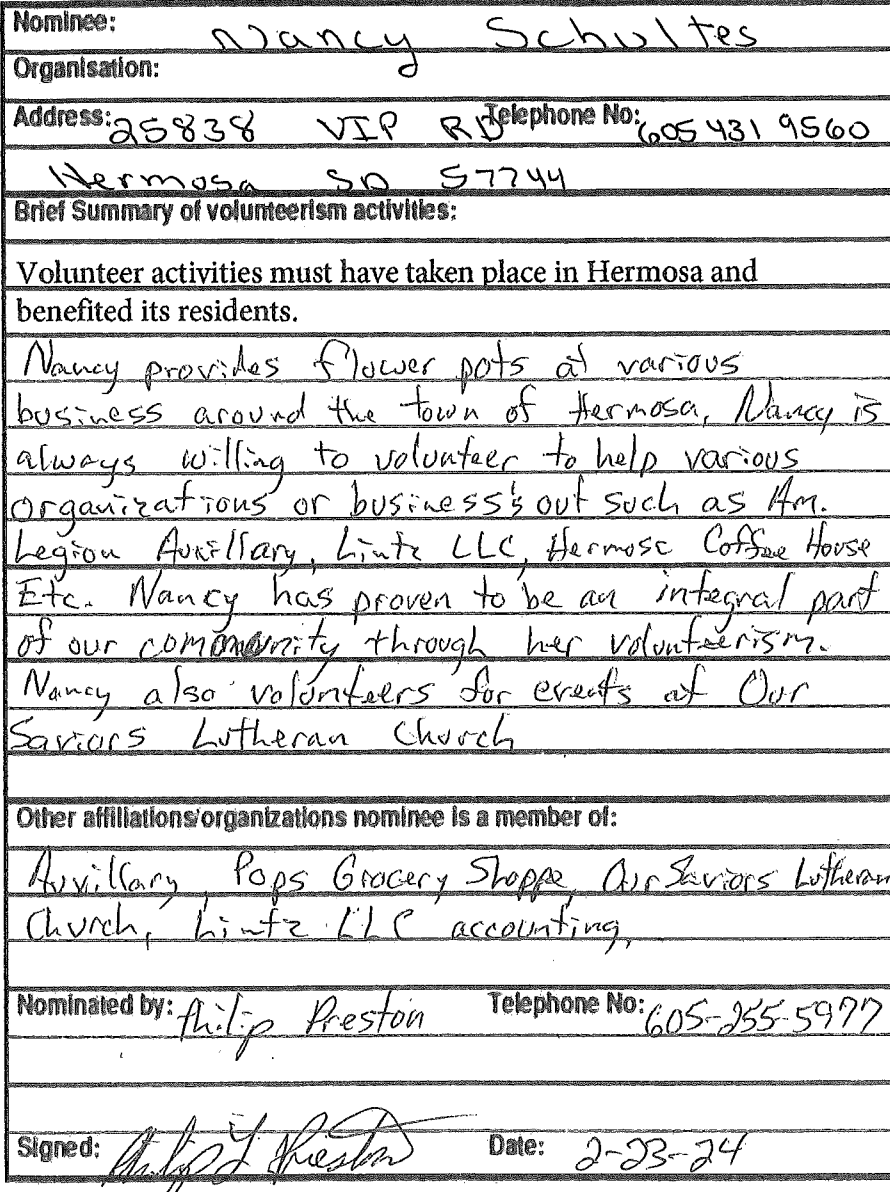 Nominee: Nancy Schultes
Organisation:
Address: 25838 VIP RD Telephone No: 605 431 9560
Hermosa SD 57744
Brief Summary of volunteerism activities:
Volunteer activities must have taken place in Hermosa and
benefited its residents.
Nancy provides flower pots at various
business around the town of Hermosa, Nancy is
always willing to volunteer to help various
organizations or business's out such as Am.
Legion Auxillary, Lintz LLC, Hermosa Coffee House
Etc. Nancy has proven to be an integral part
of our community through her volunteerism.
Nancy also volunteers for events at Our
Saviors Lutheran Church
Other affiliations/organizations nominee is a member of:
Auxillary, Pops Grocery Shoppe, Our Saviors Lutheran
Church, Lintz LLC accounting,
Nominated by: Philip Preston Telephone No: 605-255-5977
Signed: Philip L Preston Date: 2-23-24